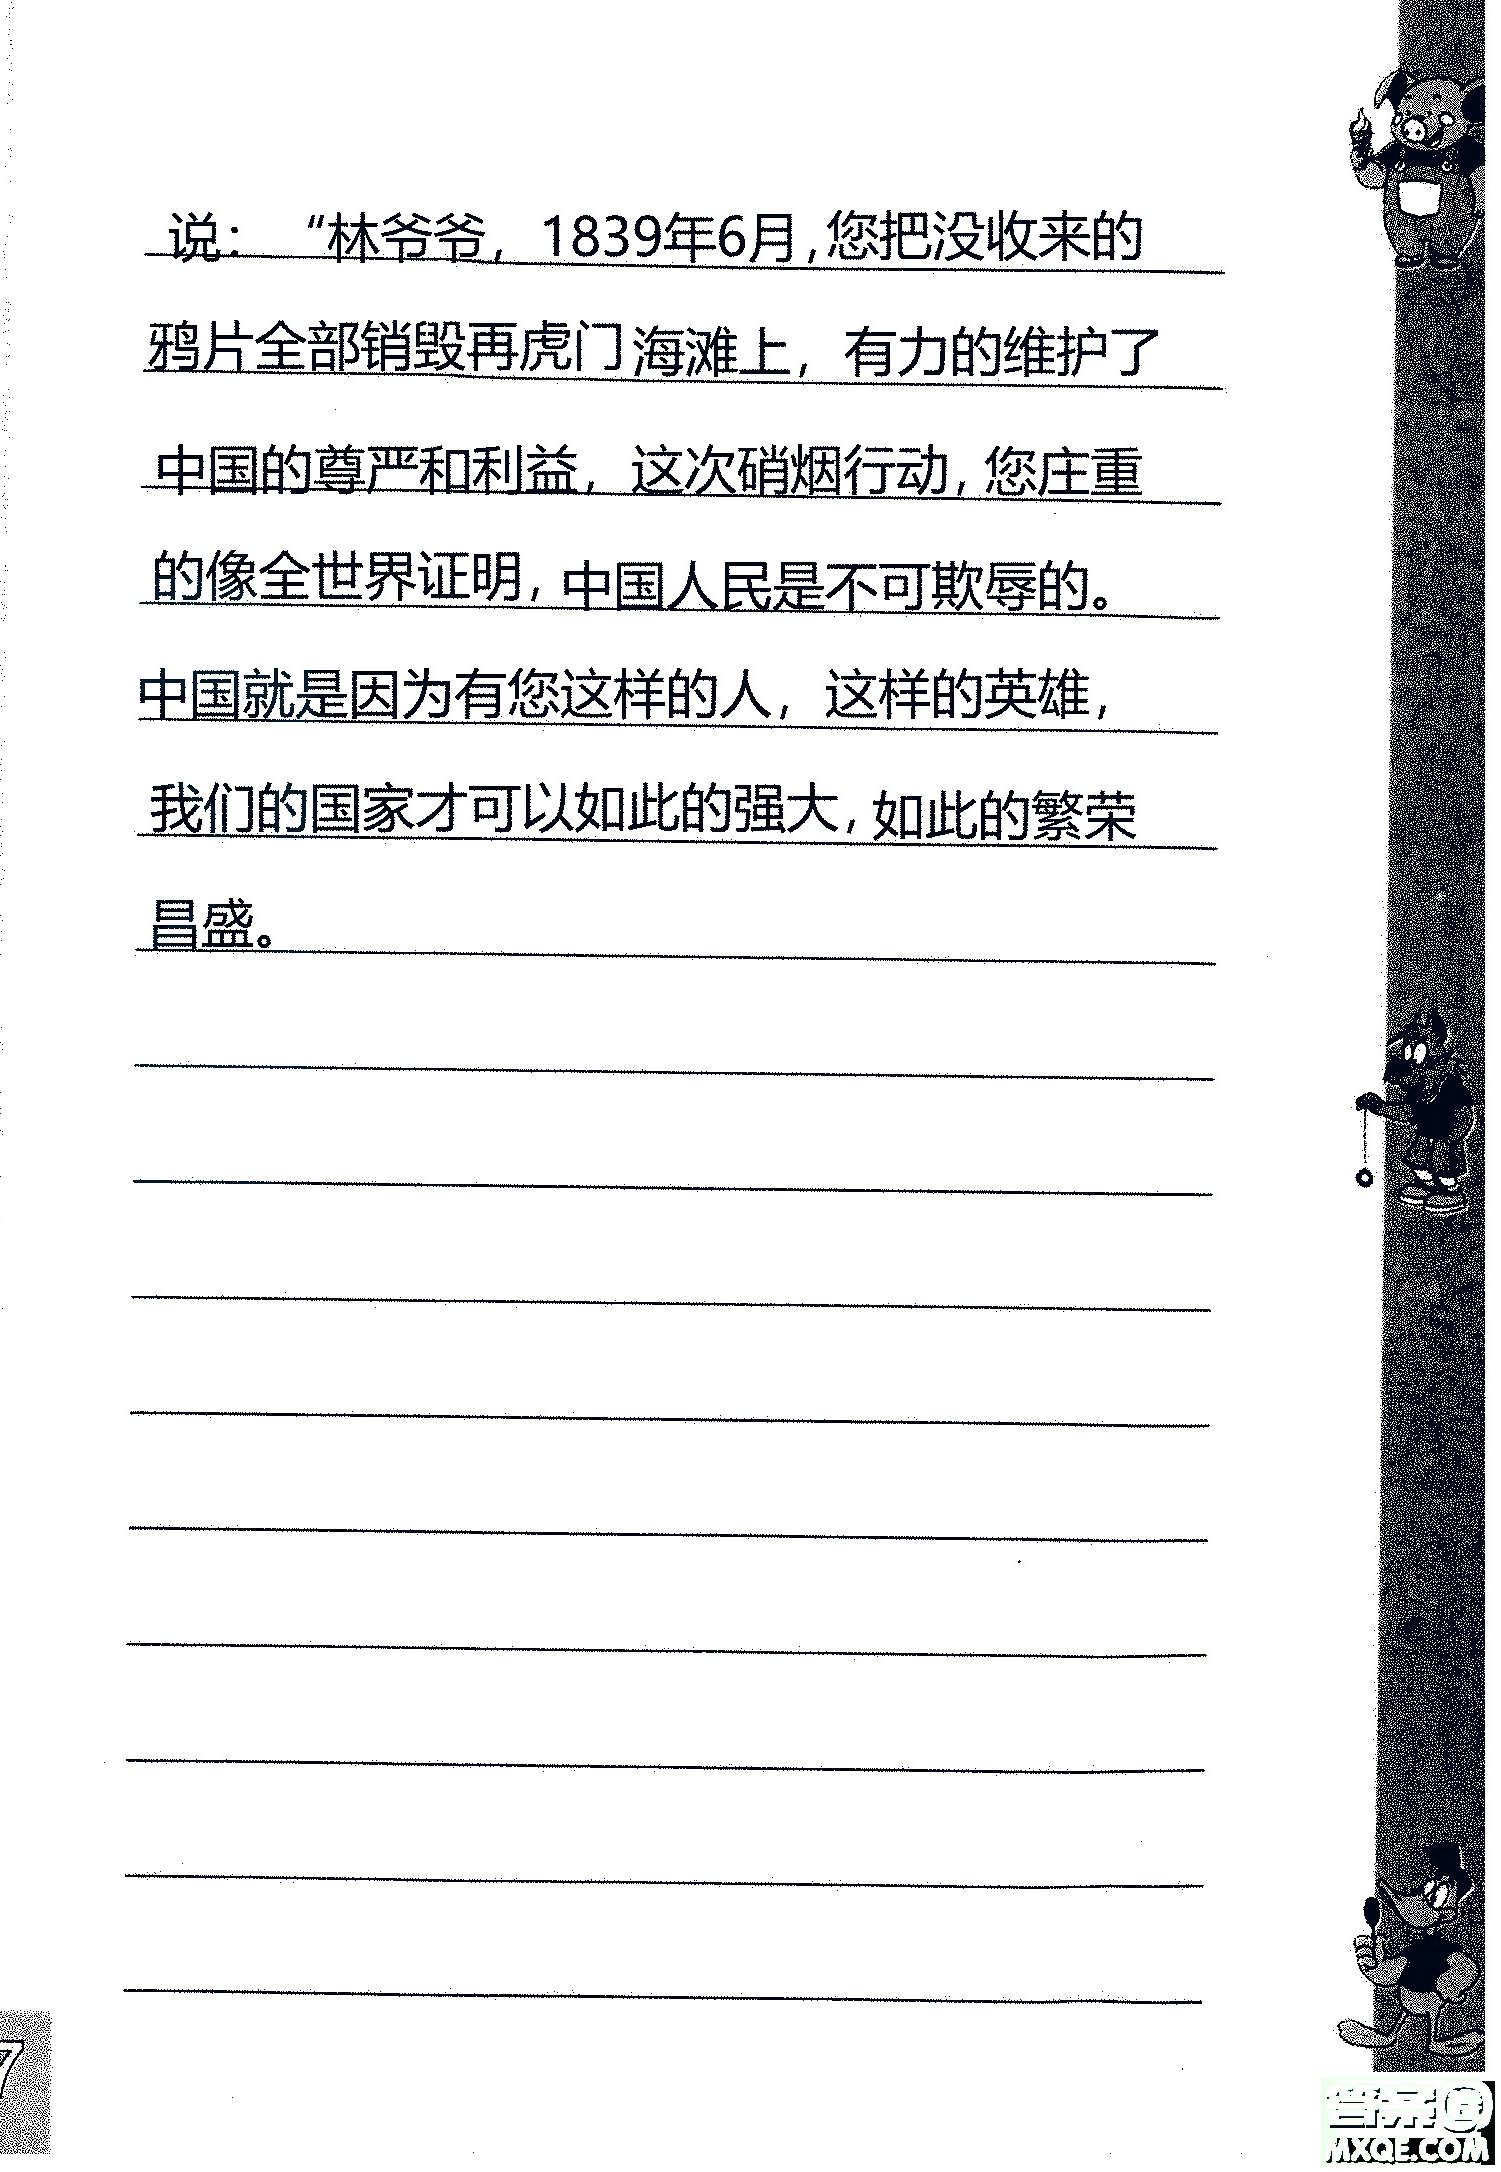 说：“林爷爷，1839年6月，您把没收来的
鸦片全部销毁再虎门海滩上，有力的维护了
中国的尊严和利益，这次硝烟行动，您庄重
的像全世界证明，中国人民是不可欺辱的。
中国就是因为有您这样的人，这样的英雄，
我们的国家才可以如此的强大，如此的繁荣
昌盛。
7
答案圈
MXQE.COM